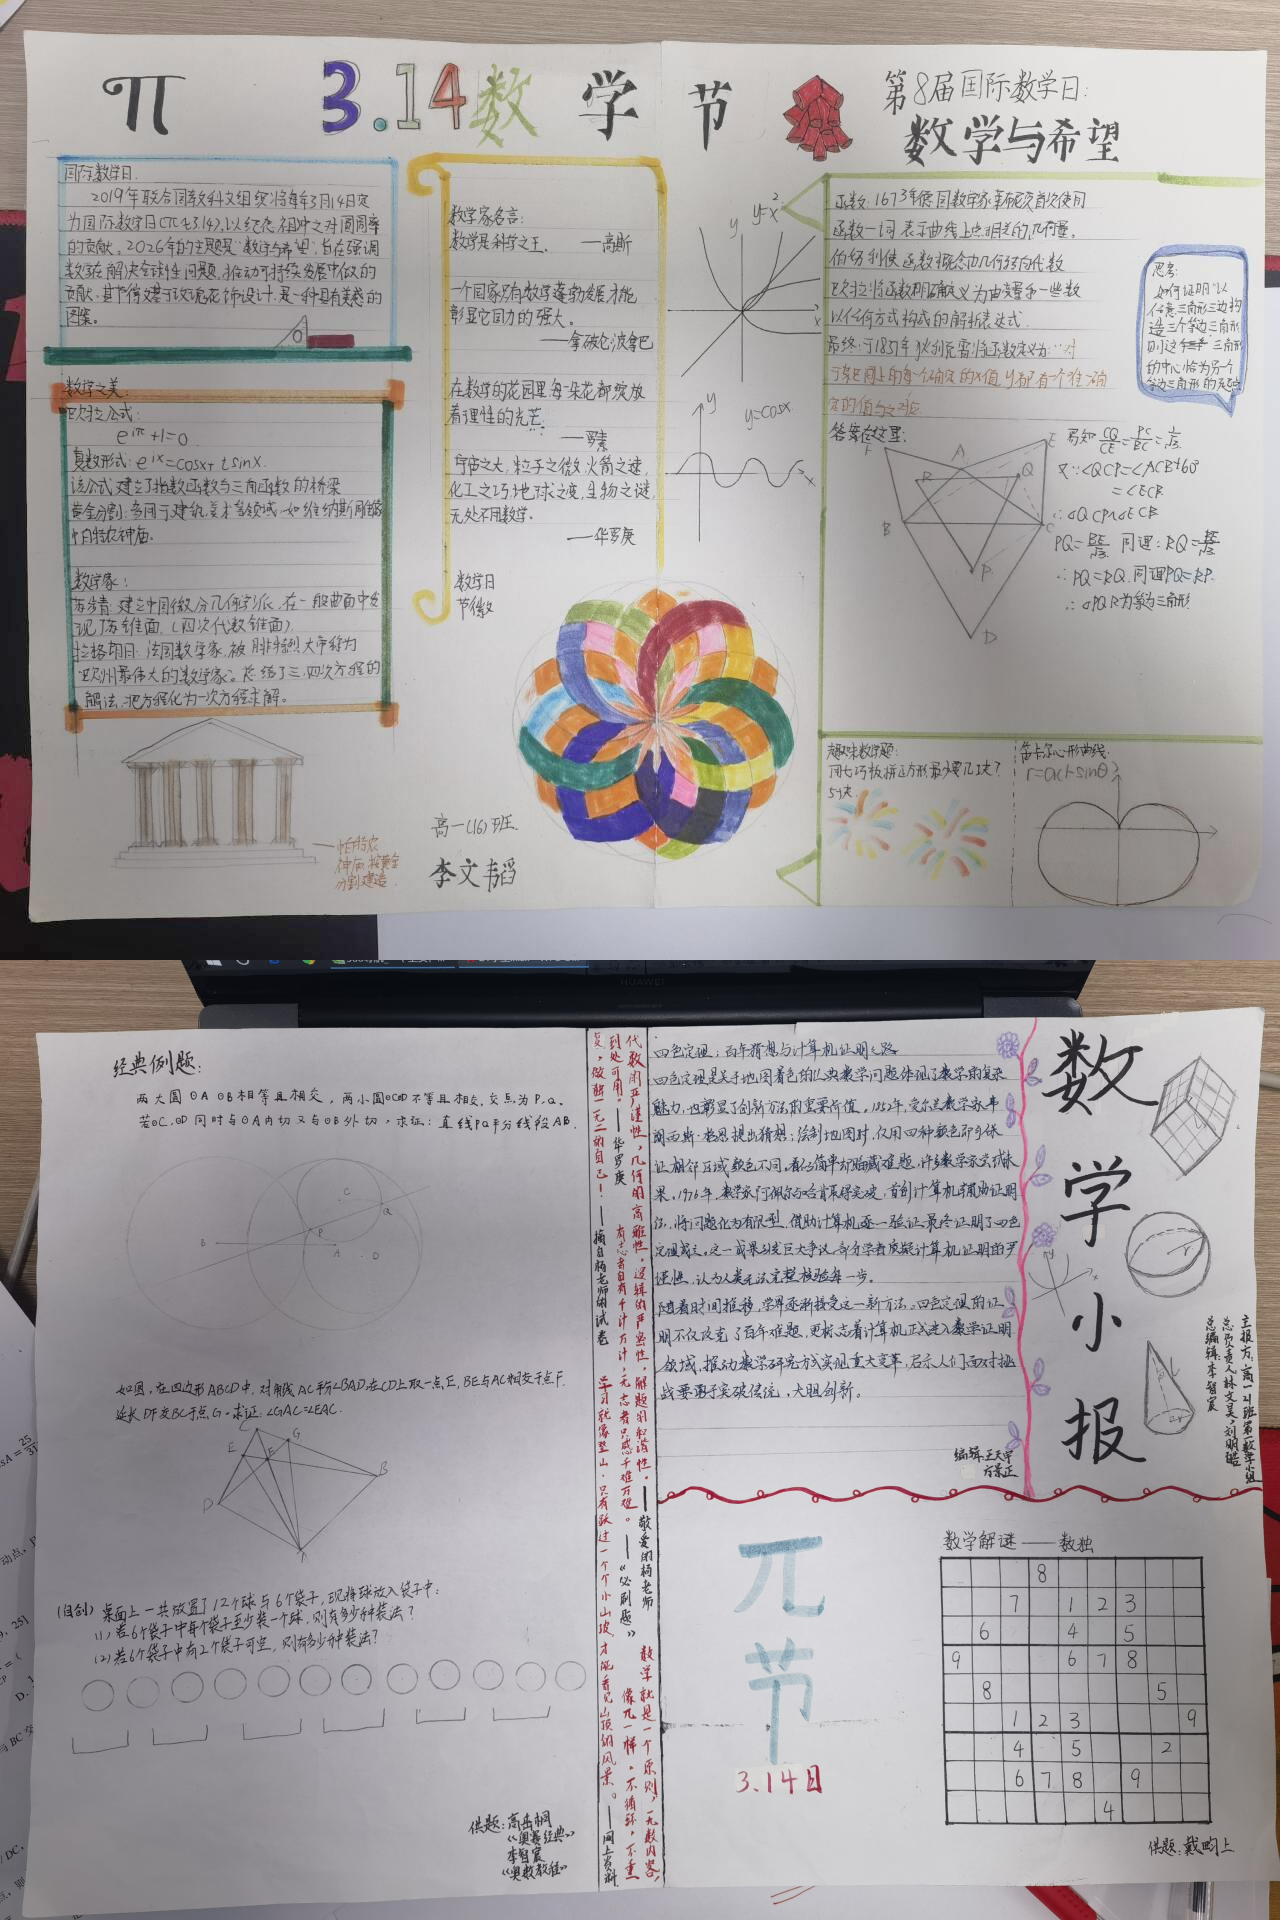 π 3.14数学节
第8届国际数学日:
数学与希望
国际数学日.
2019年联合国教科文组织将每年3月14日定
为国际数学日(π≈3.14),以纪念祖冲之对圆周率
的贡献。2026年的主题是"数学与希望",旨在强调
数学在解决全球性问题,推动可持续发展中做的
贡献.其节徽基于玫瑰花饰设计,是一种具有美感的
图案。
数学之美:
欧拉公式:
e^iπ+1=0
复数形式:e^ix=cosx+isinx.
该公式建立了指数函数与三角函数的桥梁
黄金分割:多用于建筑,美术等领域,如维纳斯雕像
帕特农神庙.
数学家:
苏步青:建立中国微分几何学派,在一般曲面中发
现了苏锥面.(四次代数锥面)
拉格朗日:法国数学家,被腓特烈大帝称为
"欧州最伟大的数学家"。总结了三,四次方程的
解法,把方程化为一次方程求解。
帕特农
神庙,按黄金
分割建造.
数学家名言:
数学是科学之王. ——高斯
一个国家只有数学蓬勃发展才能
彰显它国力的强大。
——拿破仑·波拿巴
在数学的花园里,每一朵花都绽放
着理性的光芒.
——罗素
宇宙之大,粒子之微,火箭之速,
化工之巧,地球之变,生物之谜,
无处不用数学.
——华罗庚
数学日
节徽
高一(16)班.
李文韬
y
y=x²
x
y
y=cosx.
x
函数:1673年德国数学家莱布尼茨首次使用
函数一词表示曲线上点相关的几何量。
伯努利使函数概念由几何转向代数
欧拉将函数明确定义为由变量和一些数
以任何方式构成的解析表达式.
最终,于1837年狄利克雷将函数定义为:对
于某区间上的每一个确定的x值,y都有一个唯一确
定的值与之对应.
思考:
如何证明"以
任意三角形三边构
造三个等边三角形
则这三个三角形
的中心恰为另一个
等边三角形的顶点
答案在这里:
F
A
E
R
Q
B
C
P
D
易知 CQ/CE=PC/BC=1/√3
又∵∠QCP=∠ACB+60°
=∠ECB
∴△QCP∽△ECB
PQ=BE/√3 同理:RQ=BE/√3
∴PQ=RQ.同理PQ=RP.
∴△PQR为等边三角形.
趣味数学题:
用七巧板拼正方形最少要几块?
5块.
笛卡尔心形曲线.
r=a(1-sinθ)
HUAWEI
经典例题:
两大圆⊙A ⊙B相等且相交,两小圆⊙C⊙D不等且相交,交点为P,Q.
若⊙C,⊙D同时与⊙A内切又与⊙B外切,求证:直线PQ平分线段AB.
C
Q
P
B
A
D
如图,在四边形ABCD中,对角线AC平分∠BAD,在CD上取一点E,BE与AC相交于点F.
延长DF交BC于点G.求证:∠GAC=∠EAC.
C
G
E
F
B
D
A
(自创) 桌面上一共放置了12个球与6个袋子,现将球放入袋子中:
(1)若6个袋子中每个袋子至少装一个球,则有多少种装法?
(2)若6个袋子中有2个袋子可空,则有多少种装法?
《奥赛经典》
李智宸
《奥数教程》
代数的严谨性,几何的高雅性,逻辑的严密性,解题的和谐性。——敬爱的杨老师 数学就是一个原则,无数内容,
到处可用。——华罗庚 有志者自有千计万计,无志者只感千难万难。——《必刷题》 像π一样,不循环,不重
复,做独一无二的自己!——摘自杨老师的试卷 学习就像登山,只有跃过一个个小山坡,才能看见山顶的风景。——网上资料.
四色定理:百年猜想与计算机证明之路
四色定理是关于地图着色的经典数学问题,体现了数学的复杂
魅力,也彰显了创新方法的重要价值。1852年,
绘制地图时,仅用四种颜色即可保
证相邻区域颜色不同。看似简单却暗藏难题,许多数学家尝试未
果。1976年,数学家阿佩尔与哈肯取得突破,首创计算机辅助证明
法,将问题化为有限型,借助计算机逐一验证,最终证明了四色
定理成立。这一成果引发巨大争议,部分学者质疑计算机证明的严
谨性,认为人类无法完整核验每一步。
随着时间推移,学界逐渐接受这一新方法。四色定理的证
明不仅攻克了百年难题,更标志着计算机正式进入数学证明
领域,推动数学研究方式实现重大变革,启示人们面对挑
战要勇于突破传统,大胆创新。
编辑:王天宇
方景正
数学小报
主报方:高一21班第一数学小组
总负责人:林文昊,刘明皓
总编辑:李智宸
π节
3.14日
数学解谜——数独
8
7 1 2 3
6 4 5
9 6 7 8
8 5
1 2 3 9
4 5 2
6 7 8 9
4